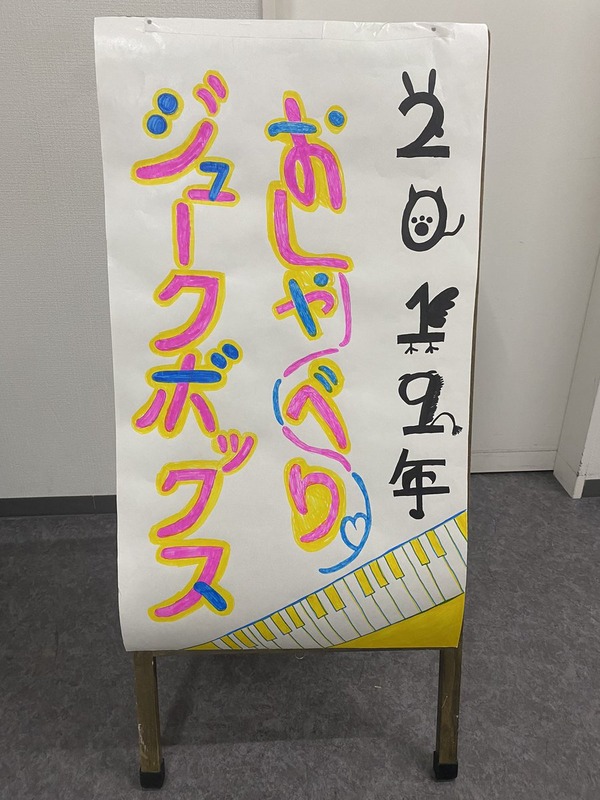 2019年
おしゃべり
ジュークボックス